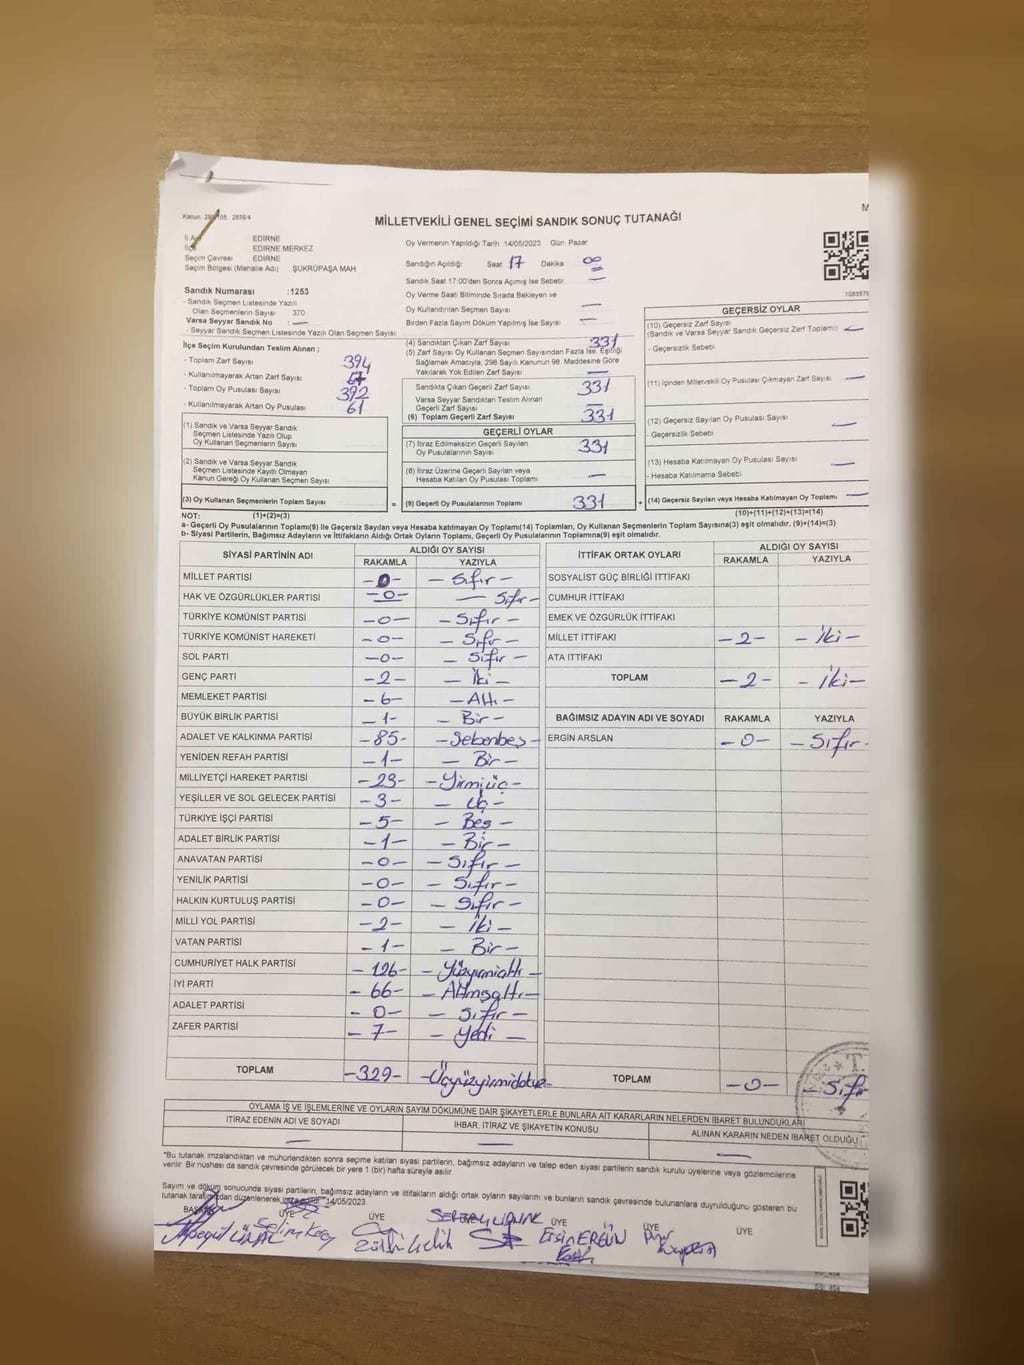 Kanun: 298/105 2839/4
MİLLETVEKİLİ GENEL SEÇİMİ SANDIK SONUÇ TUTANAĞI
M
İl A
EDİRNE
İlçe
EDİRNE MERKEZ
Seçim Çevresi EDİRNE
Seçim Bölgesi (Mahalle Adı) ŞÜKRÜPAŞA MAH.
Sandık Numarası :1253
- Sandık Seçmen Listesinde Yazılı
Olan Seçmenlerin Sayısı 370
Varsa Seyyar Sandık No : —
- Seyyar Sandık Seçmen Listesinde Yazılı Olan Seçmen Sayısı:
Oy Vermenin Yapıldığı Tarih :14/05/2023 Gün Pazar
Sandığın Açıldığı Saat 17 Dakika 00
Sandık Saat 17:00'den Sonra Açımış İse Sebebi: —
Oy Verme Saati Bitiminde Sırada Bekleyen ve
Oy Kullandırılan Seçmen Sayısı —
Birden Fazla Sayım Döküm Yapılmış İse Sayısı —
1083579
İlçe Seçim Kurulundan Teslim Alınan ;
- Toplam Zarf Sayısı 394
- Kullanılmayarak Artan Zarf Sayısı
- Toplam Oy Pusulası Sayısı 392
- Kullanılmayarak Artan Oy Pusulası 61
(1) Sandık ve Varsa Seyyar Sandık
Seçmen Listesinde Yazılı Olup
Oy Kullanan Seçmenlerin Sayısı
(2) Sandık ve Varsa Seyyar Sandık
Seçmen Listesinde Kayıtlı Olmayan
Kanun Gereği Oy Kullanan Seçmen Sayısı
(3) Oy Kullanan Seçmenlerin Toplam Sayısı
(4) Sandıktan Çıkan Zarf Sayısı 331
(5) Zarf Sayısı Oy Kullanan Seçmen Sayısından Fazla İse, Eşitliği
Sağlamak Amacıyla, 298 Sayılı Kanunun 98. Maddesine Göre
Yakılarak Yok Edilen Zarf Sayısı —
Sandıkta Çıkan Geçerli Zarf Sayısı 331
Varsa Seyyar Sandıktan Teslim Alınan
Geçerli Zarf Sayısı —
(6) Toplam Geçerli Zarf Sayısı 331
GEÇERLİ OYLAR
(7) İtiraz Edilmeksizin Geçerli Sayılan
Oy Pusulalarının Sayısı 331
(8) İtiraz Üzerine Geçerli Sayılan veya
Hesaba Katılan Oy Pusulası Toplamı —
= (9) Geçerli Oy Pusulalarının Toplamı 331
GEÇERSİZ OYLAR
(10) Geçersiz Zarf Sayısı
(Sandık ve Varsa Seyyar Sandık Geçersiz Zarf Toplamı) —
- Geçersizlik Sebebi
(11) İçinden Milletvekili Oy Pusulası Çıkmayan Zarf Sayısı —
(12) Geçersiz Sayılan Oy Pusulası Sayısı —
- Geçersizlik Sebebi
(13) Hesaba Katılmayan Oy Pusulası Sayısı —
- Hesaba Katılmama Sebebi
+ (14) Geçersiz Sayılan veya Hesaba Katılmayan Oy Toplamı —
NOT: (1)+(2)=(3)
(10)+(11)+(12)+(13)=(14)
a- Geçerli Oy Pusulalarının Toplamı(9) ile Geçersiz Sayılan veya Hesaba katılmayan Oy Toplamı(14) Toplamları, Oy Kullanan Seçmenlerin Toplam Sayısına(3) eşit olmalıdır. (9)+(14)=(3)
b- Siyasi Partilerin, Bağımsız Adayların ve İttifakların Aldığı Ortak Oyların Toplamı, Geçerli Oy Pusulalarının Toplamına(9) eşit olmalıdır.
SİYASİ PARTİNİN ADI
ALDIĞI OY SAYISI
RAKAMLA YAZIYLA
MİLLET PARTİSİ -0- - Sıfır -
HAK VE ÖZGÜRLÜKLER PARTİSİ -0- - Sıfır -
TÜRKİYE KOMÜNİST PARTİSİ -0- - Sıfır -
TÜRKİYE KOMÜNİST HAREKETİ -0- - Sıfır -
SOL PARTİ -0- - Sıfır -
GENÇ PARTİ -2- - İki -
MEMLEKET PARTİSİ -6- - Altı -
BÜYÜK BİRLİK PARTİSİ -1- - Bir -
ADALET VE KALKINMA PARTİSİ -85- - Seksenbeş -
YENİDEN REFAH PARTİSİ -1- - Bir -
MİLLİYETÇİ HAREKET PARTİSİ -23- - Yirmiüç -
YEŞİLLER VE SOL GELECEK PARTİSİ -3- - Üç -
TÜRKİYE İŞÇİ PARTİSİ -5- - Beş -
ADALET BİRLİK PARTİSİ -1- - Bir -
ANAVATAN PARTİSİ -0- - Sıfır -
YENİLİK PARTİSİ -0- - Sıfır -
HALKIN KURTULUŞ PARTİSİ -0- - Sıfır -
MİLLİ YOL PARTİSİ -2- - İki -
VATAN PARTİSİ -1- - Bir -
CUMHURİYET HALK PARTİSİ -126- - Yüzyirmialtı -
İYİ PARTİ -66- - Altmışaltı -
ADALET PARTİSİ -0- - Sıfır -
ZAFER PARTİSİ -7- - Yedi -
TOPLAM -329- - Üçyüzyirmidokuz -
İTTİFAK ORTAK OYLARI
ALDIĞI OY SAYISI
RAKAMLA YAZIYLA
SOSYALİST GÜÇ BİRLİĞİ İTTİFAKI
CUMHUR İTTİFAKI
EMEK VE ÖZGÜRLÜK İTTİFAKI
MİLLET İTTİFAKI -2- - İki -
ATA İTTİFAKI
TOPLAM -2- - İki -
BAĞIMSIZ ADAYIN ADI VE SOYADI RAKAMLA YAZIYLA
ERGİN ARSLAN -0- - Sıfır -
TOPLAM -0- - Sıfır
OYLAMA İŞ VE İŞLEMLERİNE VE OYLARIN SAYIM DÖKÜMÜNE DAİR ŞİKAYETLERLE BUNLARA AİT KARARLARIN NELERDEN İBARET BULUNDUKLARI
İTİRAZ EDENİN ADI VE SOYADI İHBAR, İTİRAZ VE ŞİKAYETİN KONUSU ALINAN KARARIN NEDEN İBARET OLDUĞU
— — —
*Bu tutanak imzalandıktan ve mühürlendikten sonra seçime katılan siyasi partilerin, bağımsız adayların ve talep eden siyasi partilerin sandık kurulu üyelerine veya gözlemcilerine
verilir. Bir nüshası da sandık çevresinde görülecek bir yere 1 (bir) hafta süreyle asılır.
Sayım ve döküm sonucunda siyasi partilerin, bağımsız adayların ve ittifakların aldığı ortak oyların sayılarını ve bunların sandık çevresinde bulunanlara duyrulduğunu gösteren bu
tutanak tarafımızdan düzenlenerek 14/05/2023
ÜYE ÜYE ÜYE ÜYE ÜYE
Ersin ERGÜN